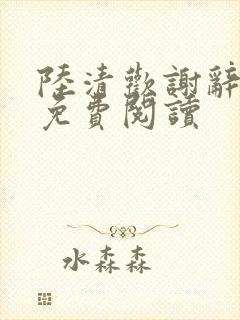 陸清歡謝辭
免費閱讀
水森森